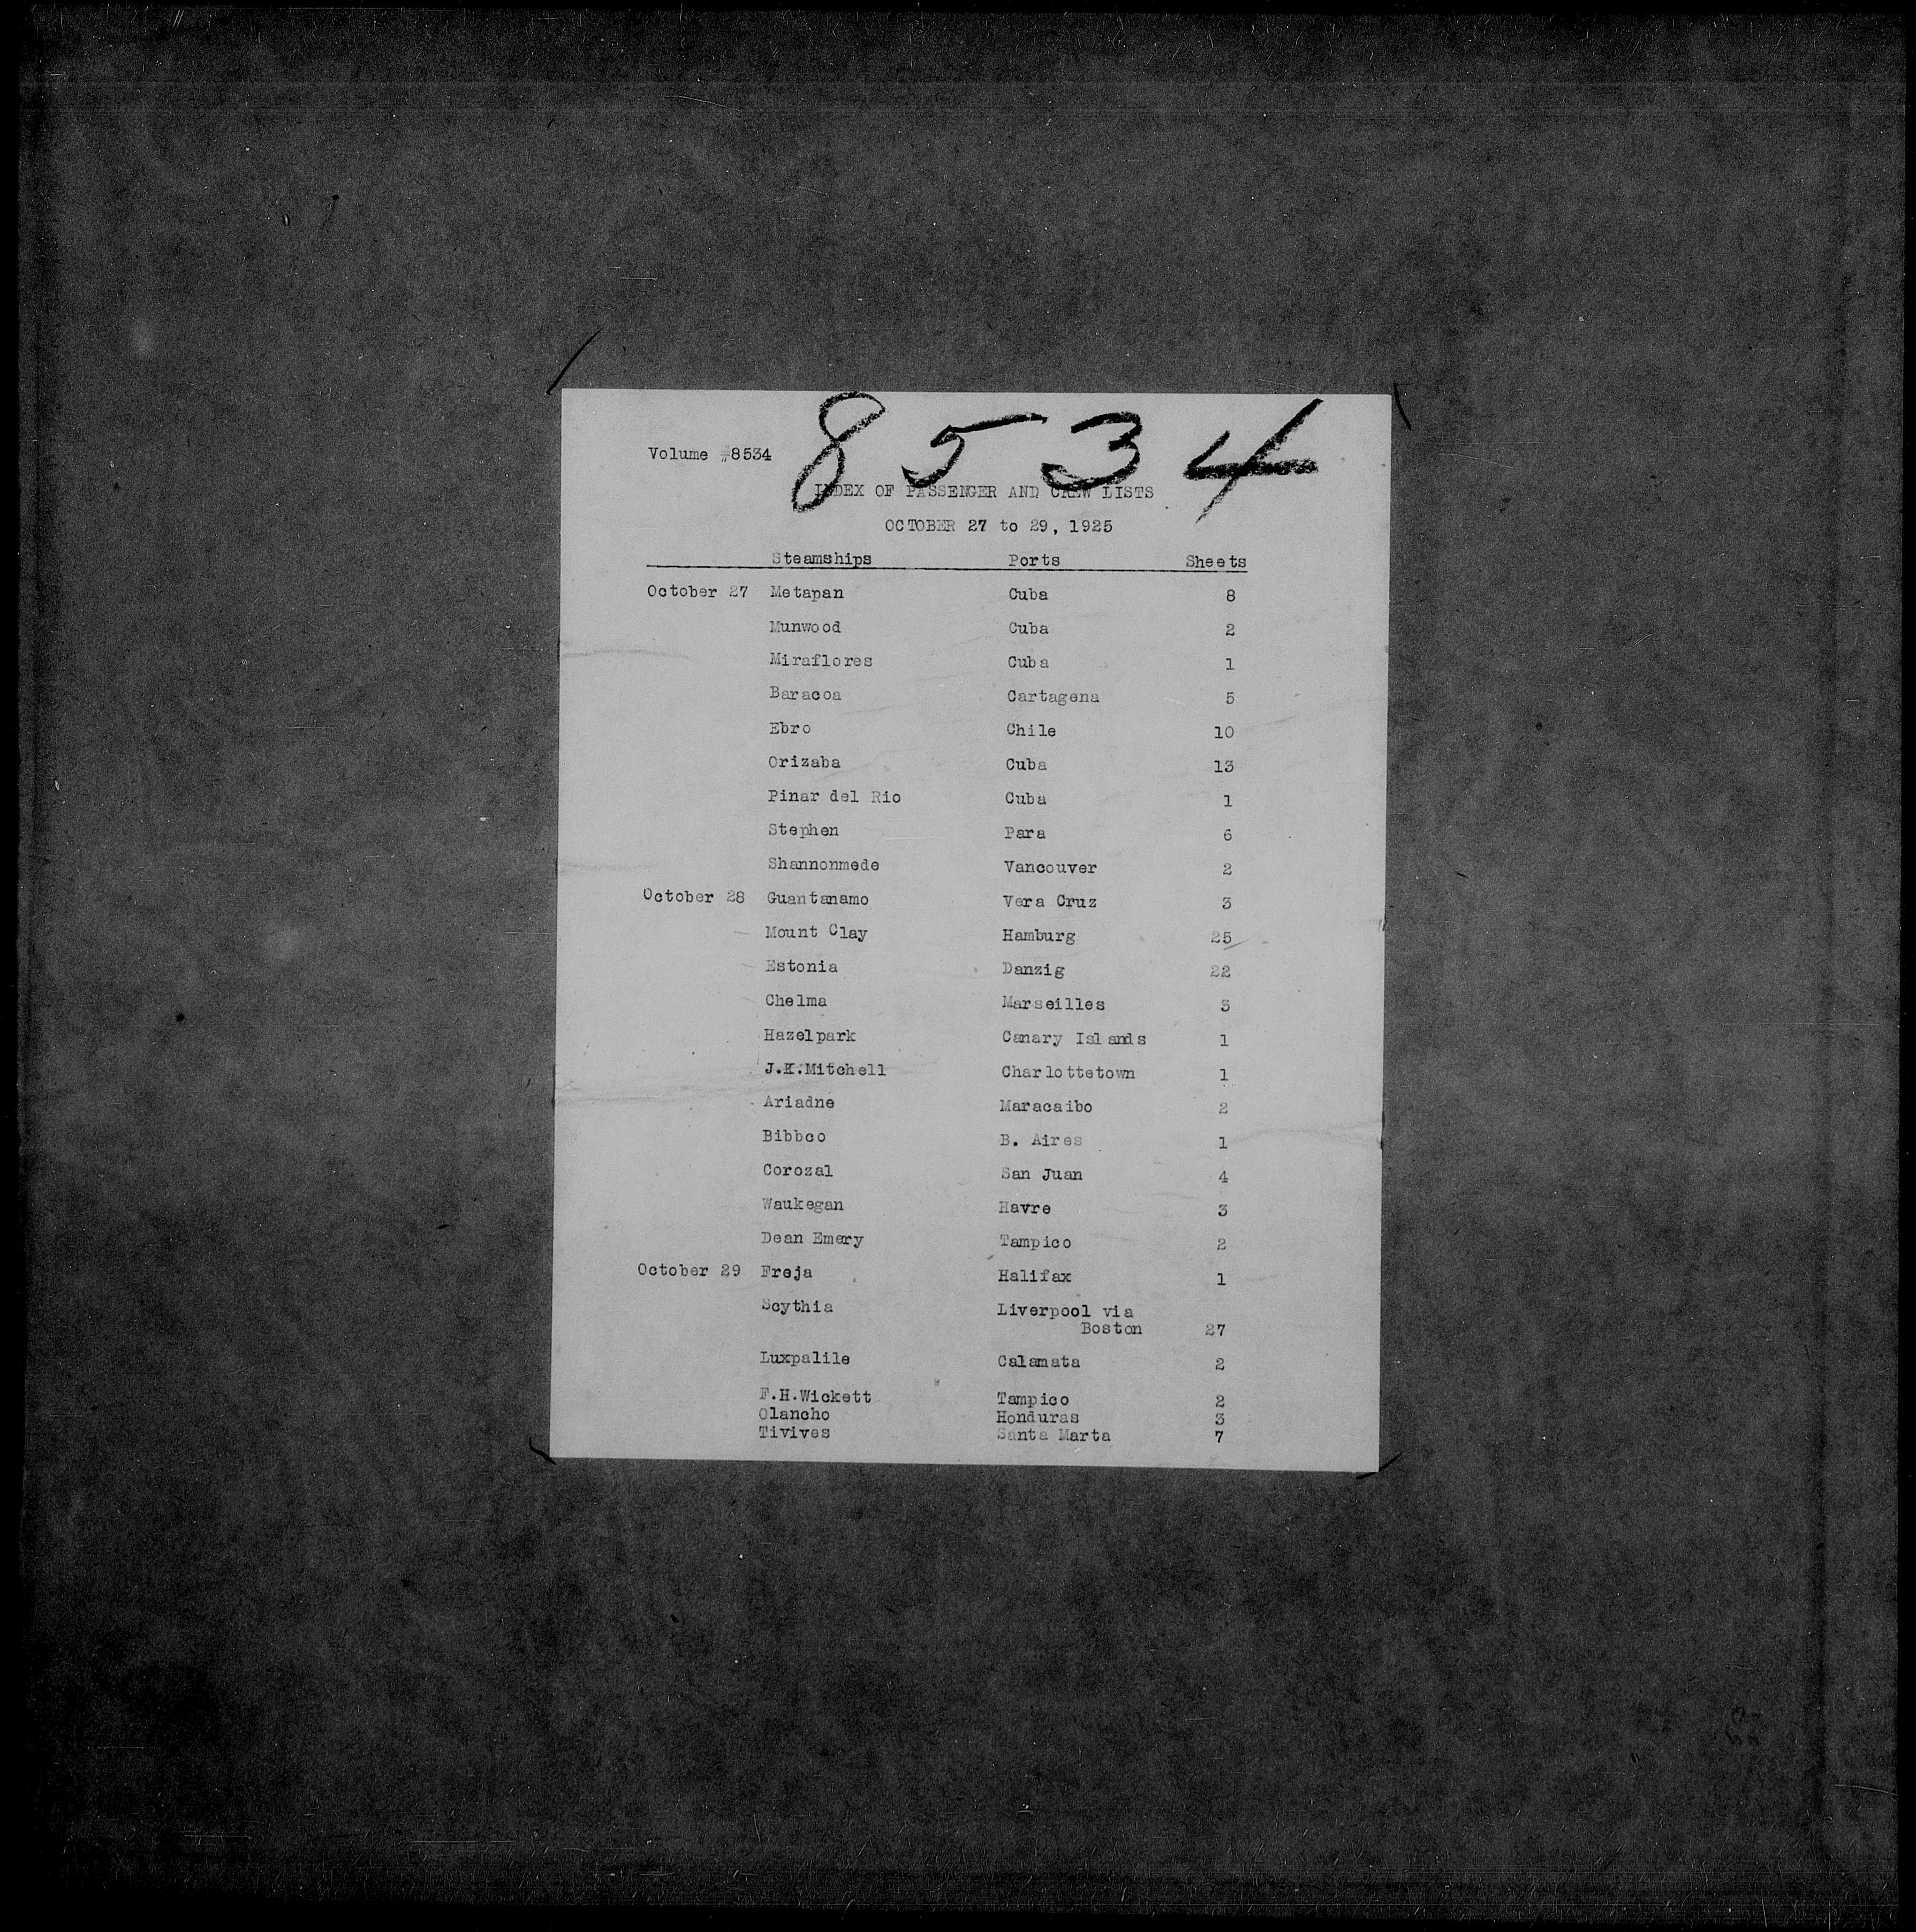 8534
Volume #8534
INDEX OF PASSENGER AND CREW LISTS
OCTOBER 27 to 29, 1925
Steamships Ports Sheets
October 27 Metapan Cuba 8
Munwood Cuba 2
Miraflores Cuba 1
Baracoa Cartagena 5
Ebro Chile 10
Orizaba Cuba 13
Pinar del Rio Cuba 1
Stephen Para 6
Shannonmede Vancouver 2
October 28 Guantanamo Vera Cruz 3
Mount Clay Hamburg 25
Estonia Danzig 22
Chelma Marseilles 3
Hazelpark Canary Islands 1
J.K.Mitchell Charlottetown 1
Ariadne Maracaibo 2
Bibbco B. Aires 1
Corozal San Juan 4
Waukegan Havre 3
Dean Emery Tampico 2
October 29 Freja Halifax 1
Scythia Liverpool via
Boston 27
Luxpalile Calamata 2
F.H.Wickett Tampico 2
Olancho Honduras 3
Tivives Santa Marta 7